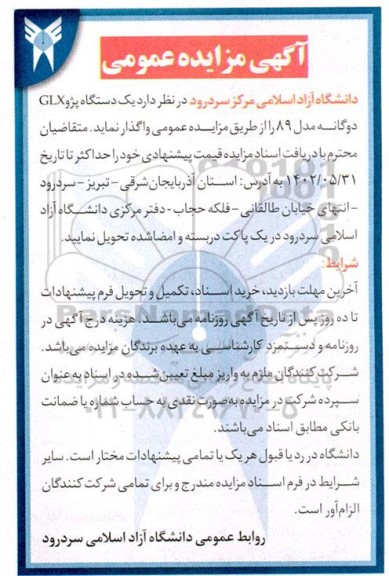 آگهی مزایده عمومی
دانشگاه آزاد اسلامی مرکز سردرود در نظر دارد یک دستگاه پژو GLX
دوگانه مدل ۸۹ را از طریق مزایده عمومی واگذار نماید. متقاضیان
محترم با دریافت اسناد مزایده قیمت پیشنهادی خود را حداکثر تا تاریخ
۱۴۰۲/۰۵/۳۱ به آدرس: استان آذربایجان شرقی - تبریز - سردرود
- انتهای خیابان طالقانی - فلکه حجاب - دفتر مرکزی دانشگاه آزاد
اسلامی سردرود در یک پاکت دربسته و امضا شده تحویل نمایید.
شرایط:
آخرین مهلت بازدید، خرید اسناد، تکمیل و تحویل فرم پیشنهادات
تا ده روز پس از تاریخ آگهی روزنامه می‌باشد. هزینه درج آگهی در
روزنامه و دستمزد کارشناسی به عهده برندگان مزایده می‌باشد.
شرکت کنندگان ملزم به واریز مبلغ تعیین شده در اسناد به عنوان
سپرده شرکت در مزایده به صورت نقدی به حساب شماره یا ضمانت
بانکی مطابق اسناد می‌باشند.
دانشگاه در رد یا قبول هر یک یا تمامی پیشنهادات مختار است. سایر
شرایط در فرم اسناد مزایده مندرج و برای تمامی شرکت کنندگان
الزام‌آور است.
روابط عمومی دانشگاه آزاد اسلامی سردرود